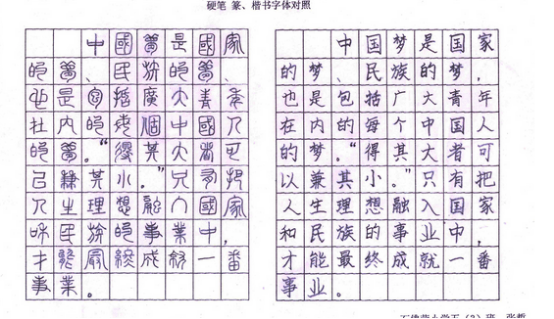 硬笔 篆、楷书字体对照
中國夢是國家
的夢、民族的夢、
也是包括廣大青年
在内的每個中國人
的夢。“得其大者可
以兼其小。”只有把
人生理想融入國家
和民族的事業中，
才能最終成就一番
事業。
中国梦是国家
的梦、民族的梦，
也是包括广大青年
在内的每个中国人
的梦。“得其大者可
以兼其小。”只有把
人生理想融入国家
和民族的事业中，
才能最终成就一番
事业。